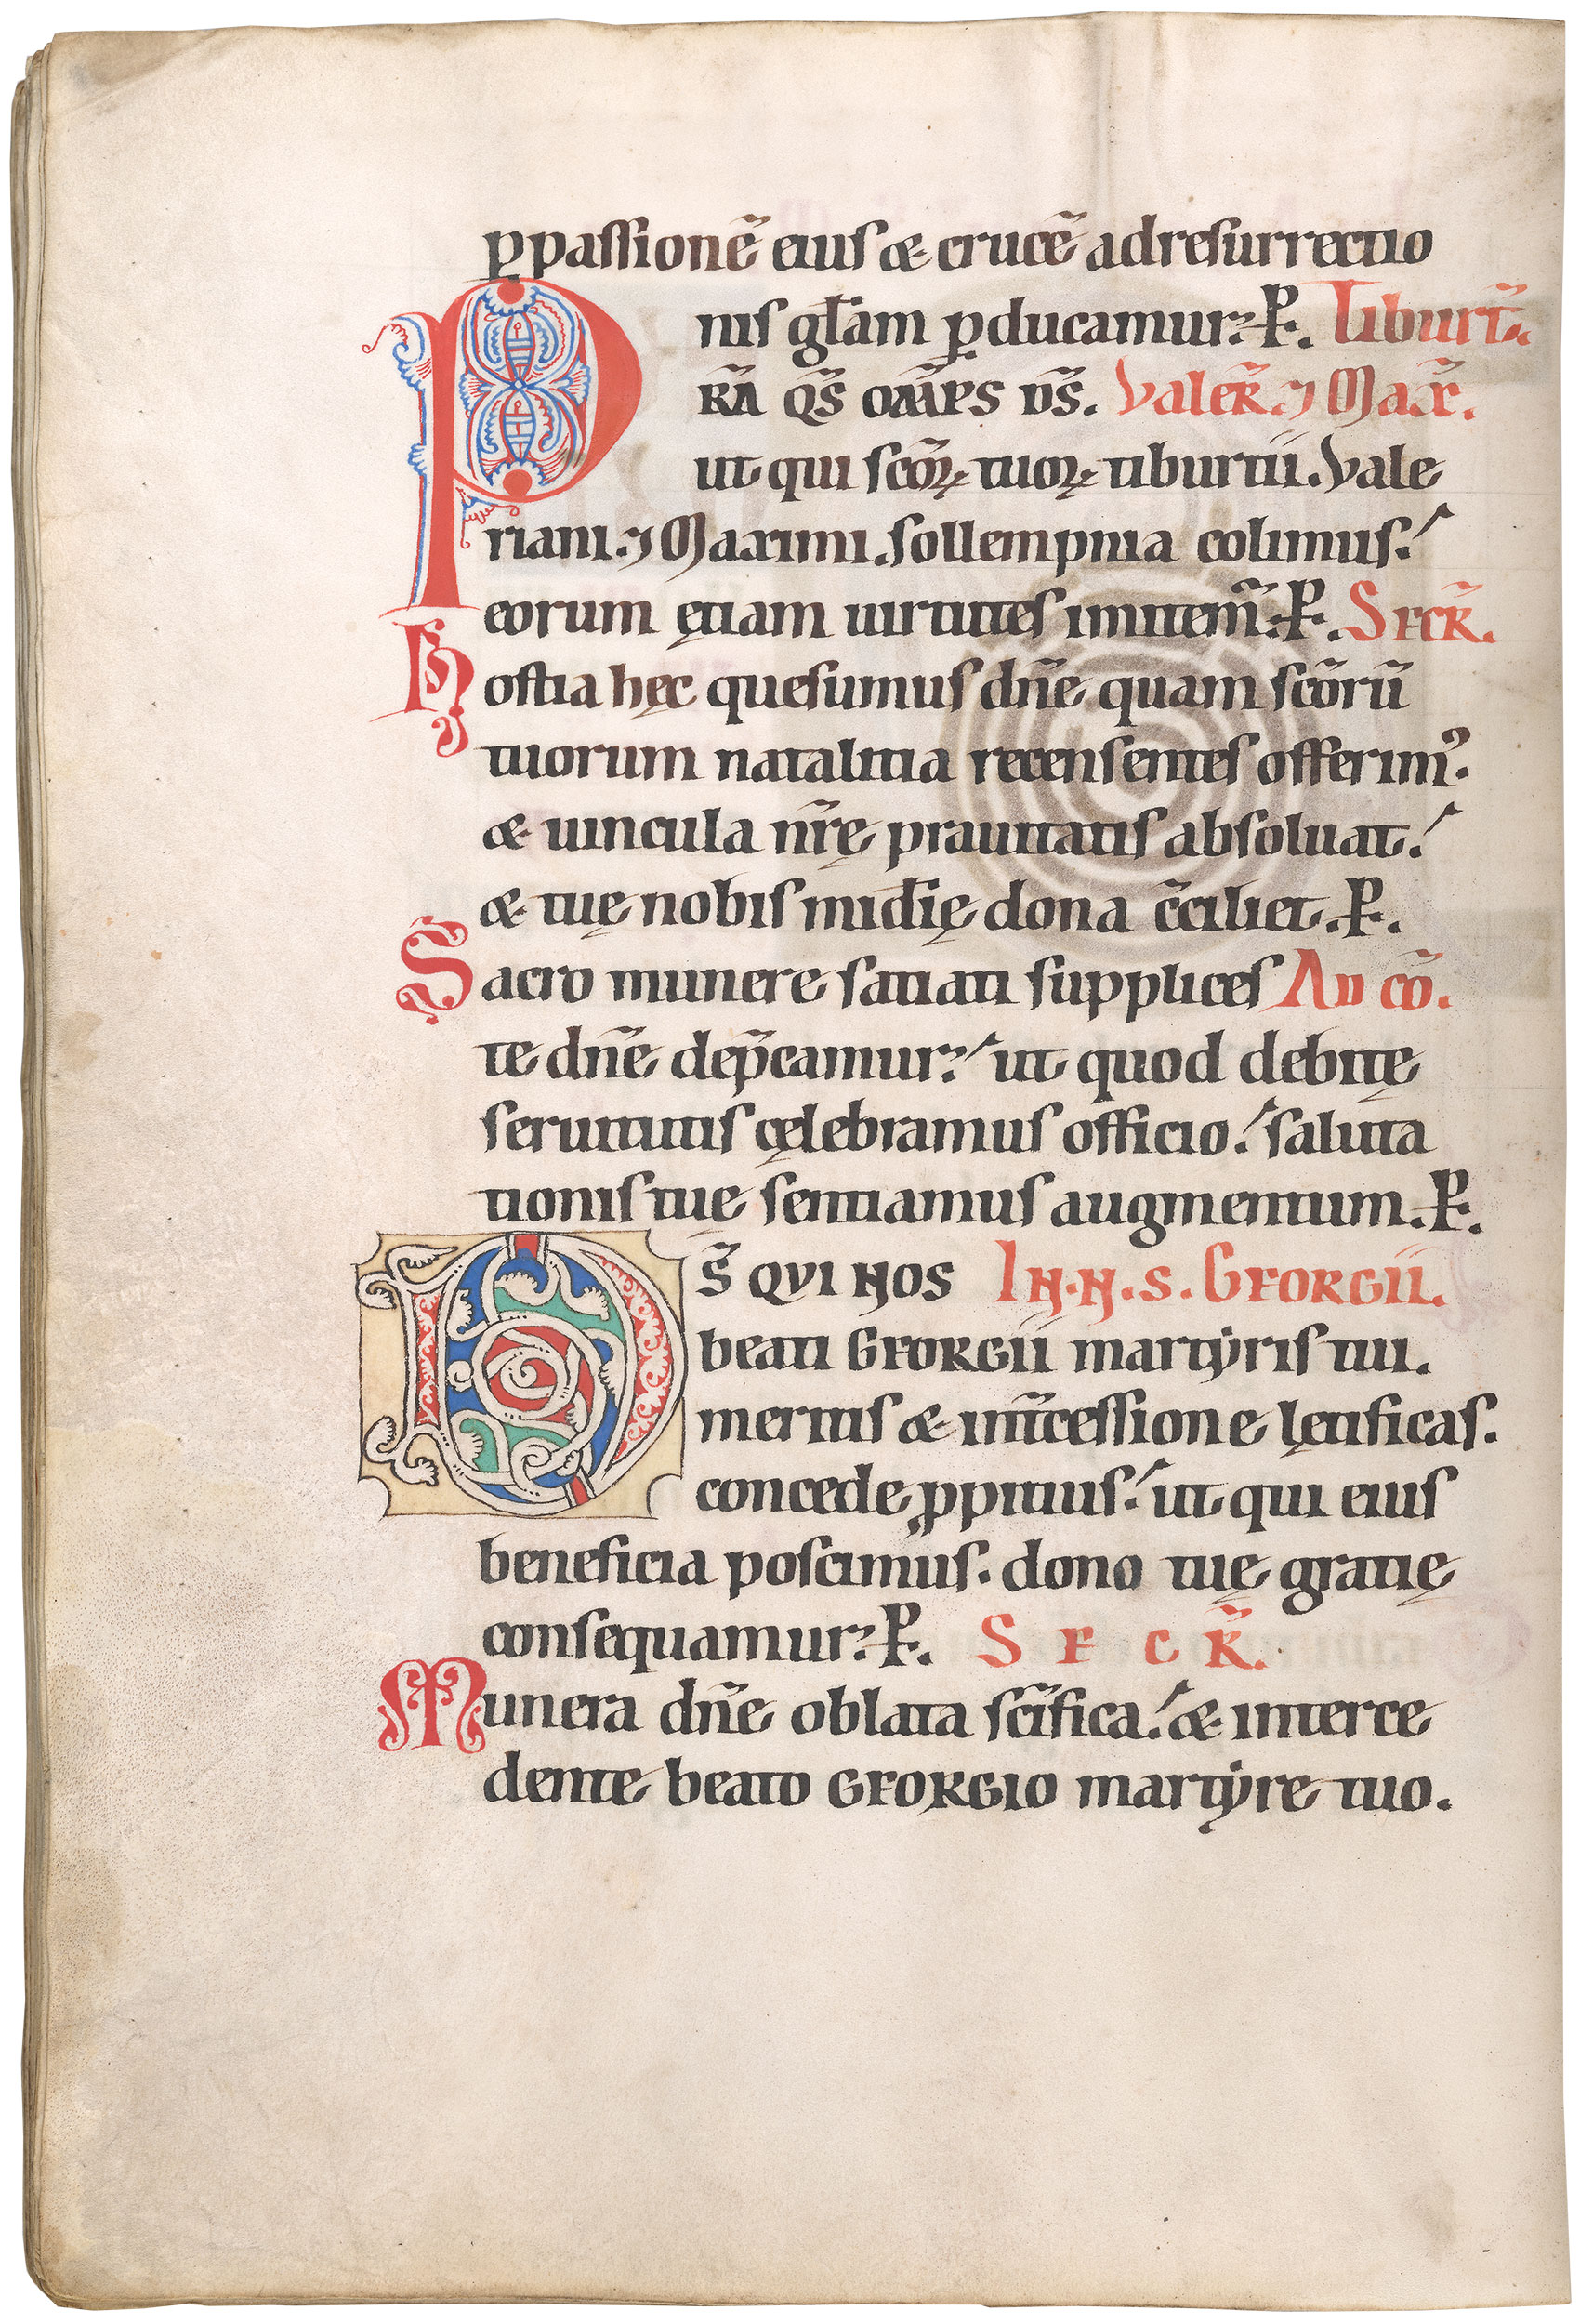 p̲ passionē eius & crucē ad resurrectio
nis gl̄am ꝑducamur. P̶. Tiburt̄.
PR̄A QS̄ OMĪPS DS̄. Valer̄. ⁊ Max̄.
ut qui scōꝝ tuoꝝ tiburtii. Vale
riani. ⁊ Maximi. sollempnia colimus.
eorum ętiam uirtutes imitem̄. P̶. SECR̄.
Hostia hęc quesumus dn̄e quam scōrū
tuorum natalitia recensentes offerimꝰ.
& uincula nr̄ę prauitatis absoluat.
& tuę nobis mīdię dona c̄ciliet. P̶.
Sacro munere satiati supplices AD cō.
te dn̄e dep̄camur. ut quod debitę
seruitutis cęlebramus officio. saluta
tionis tuę sentiamus augmentum. P̶.
DS̄ QVI NOS IN. N. S. GEORGII.
beati GEORGII martẏris tui.
meritis & int̄cessione lętificas.
concede ꝓpitius. ut qui eius
beneficia poscimus. dono tuę gratię
consequamur. P̶. SECR̄.
Munera dn̄e oblata sc̄ifica. & interce
dente beato GEORGIO martẏre tuo.